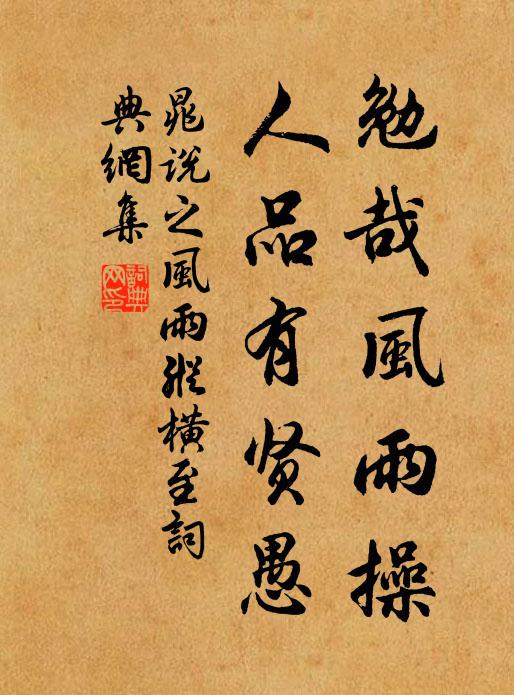 勉哉風雨操
人品有贤愚
晁说之風雨縱横至詞
典網集
詞典
网印